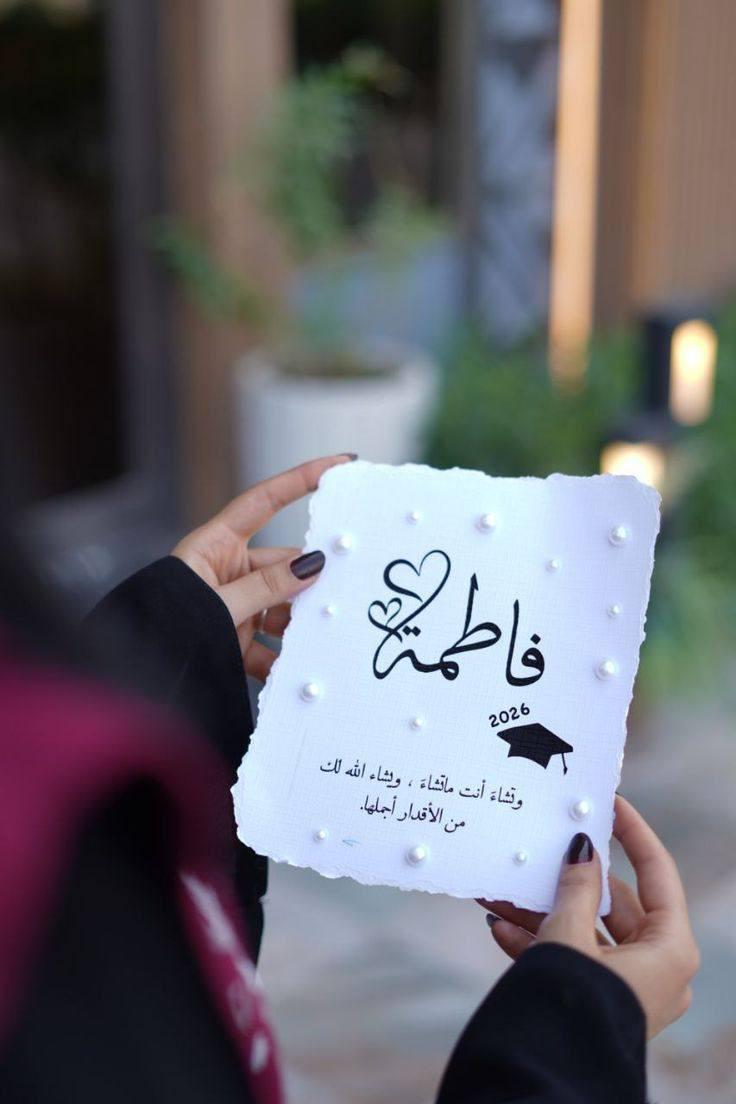 فاطمة
2026
وتشاءَ أنت ماتشاءَ ، ويشاء الله لك
من الأقدار أجملها.